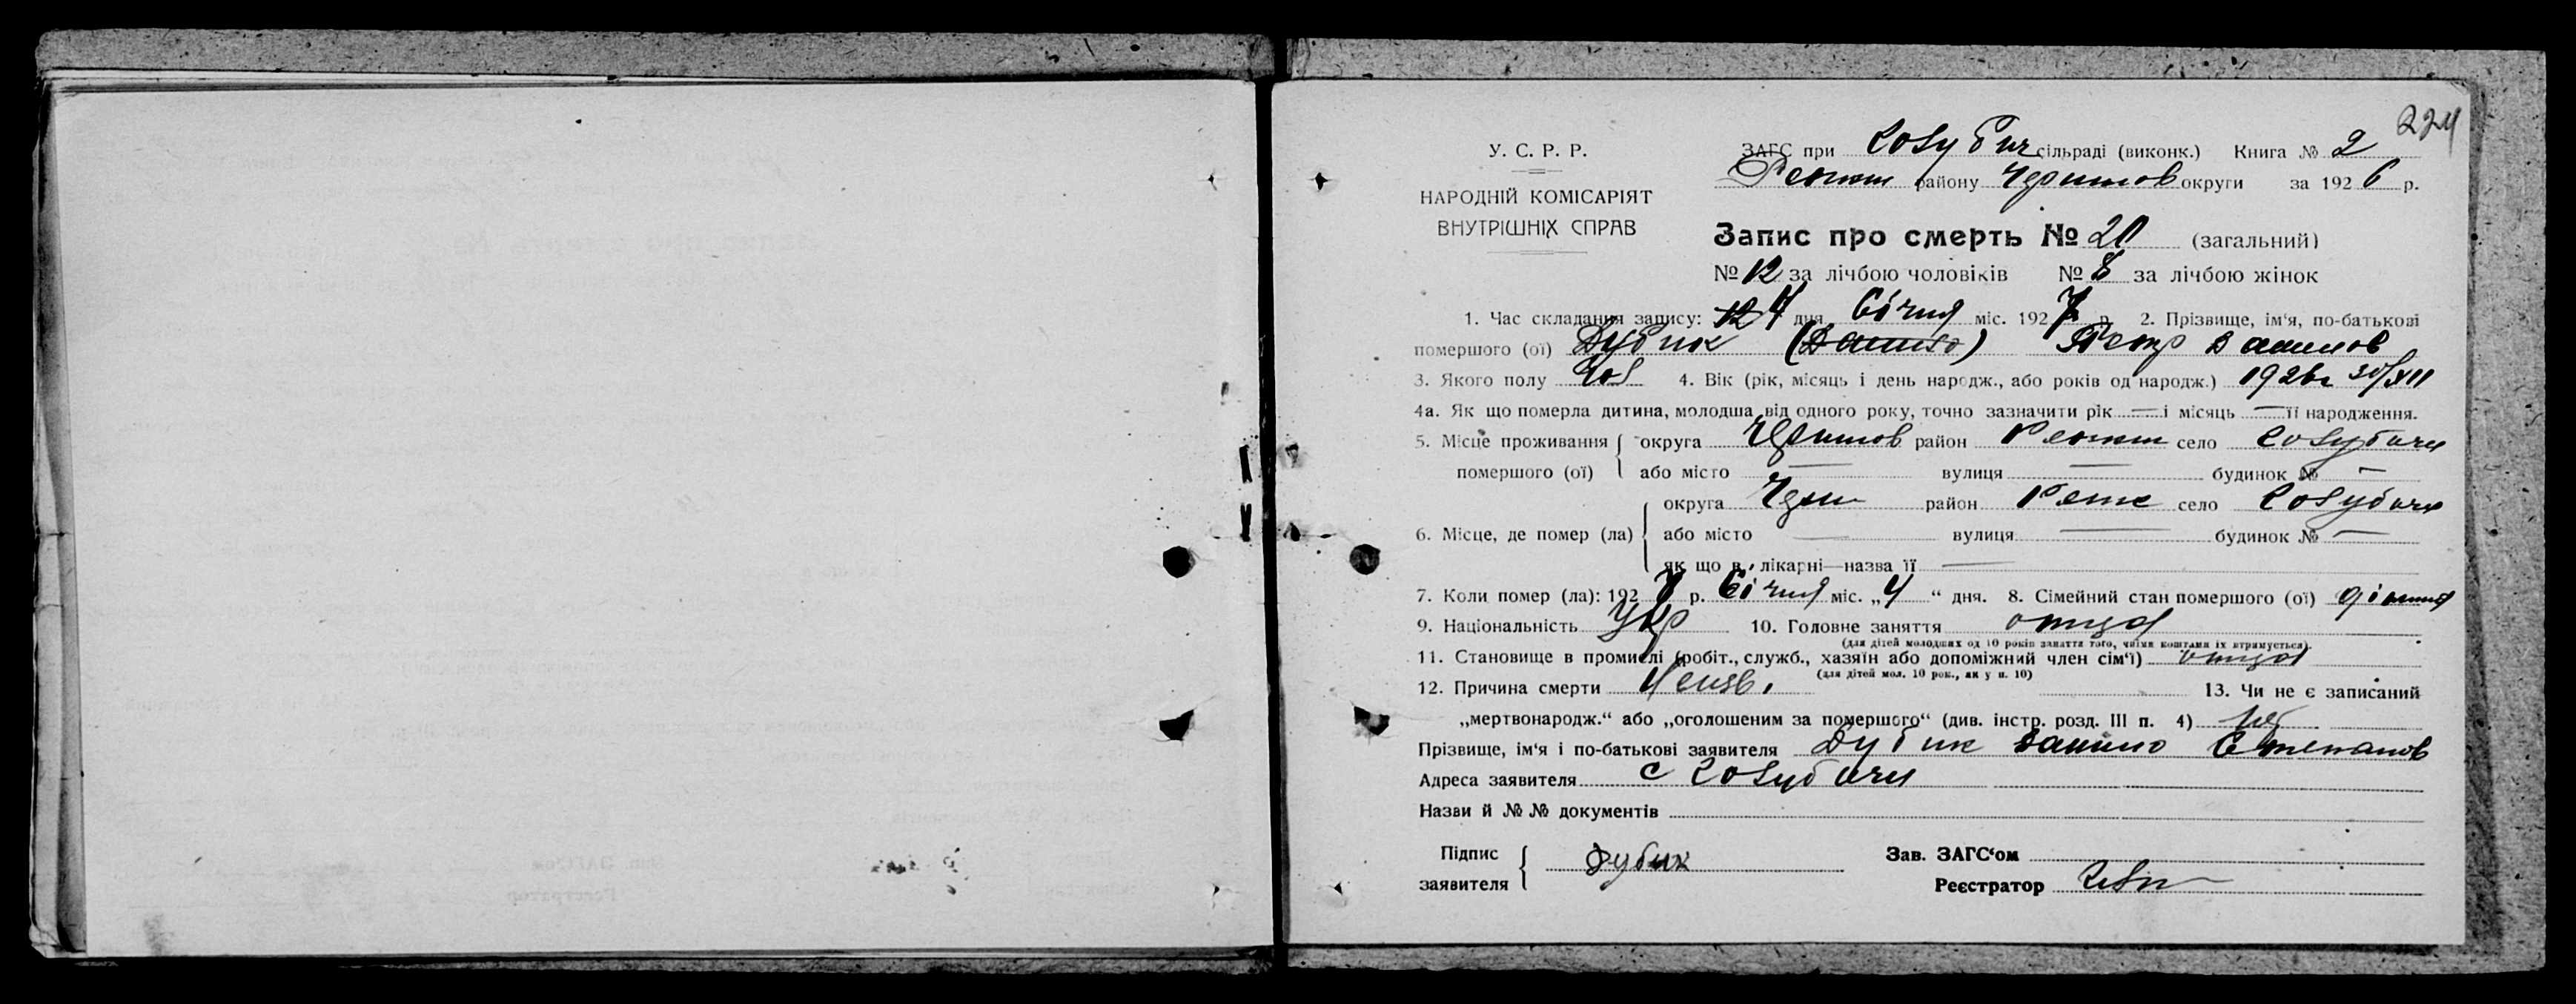 224
У. С. Р. Р.
НАРОДНІЙ КОМІСАРІЯТ
ВНУТРІШНІХ СПРАВ
ЗАГС при Голубич сільраді (виконк.) Книга № 2
Репкин району Чернигов округи за 1926 р.
Запис про смерть № 20 (загальний)
№ 12 за лічбою чоловіків № 8 за лічбою жінок
1. Час складання запису: 12 4 дня Січня міс. 1927 р. 2. Прізвище, ім‘я, по-батькові
помершого (ої) Дубик (Данило) Петр Данилов
3. Якого полу Чол 4. Вік (рік, місяць і день народж., або років од народж.) 1926г 30/XII
4а. Як що померла дитина, молодша від одного року, точно зазначити рік — і місяць — її народження.
5. Місце проживання помершого (ої) { округа Чернигов район Репкин село Голубичи
або місто — вулиця — будинок № —
6. Місце, де помер (ла) { округа Черн район Репк село Голубичи
або місто — вулиця — будинок № —
як що в лікарні—назва її —
7. Коли помер (ла): 1927 р. Січня міс. „4“ дня. 8. Сімейний стан помершого (ої)
9. Національність Укр 10. Головне заняття отца
(для дітей молодших од 10 років заняття того, чиїми коштами їх втримується).
11. Становище в промислі (робіт., служб., хазяїн або допоміжний член сім‘ї) отца
(для дітей мол. 10 рок., як у п. 10)
12. Причина смерти Неизв. 13. Чи не є записаний
„мертвонародж.“ або „оголошеним за помершого“ (див. інстр. розд. III п. 4)
Прізвище, ім‘я і по-батькові заявителя Дубик Данило Степанов
Адреса заявителя с Голубичи
Назви й № № документів
Підпис заявителя { Дубик
Зав. ЗАГС‘ом
Реєстратор